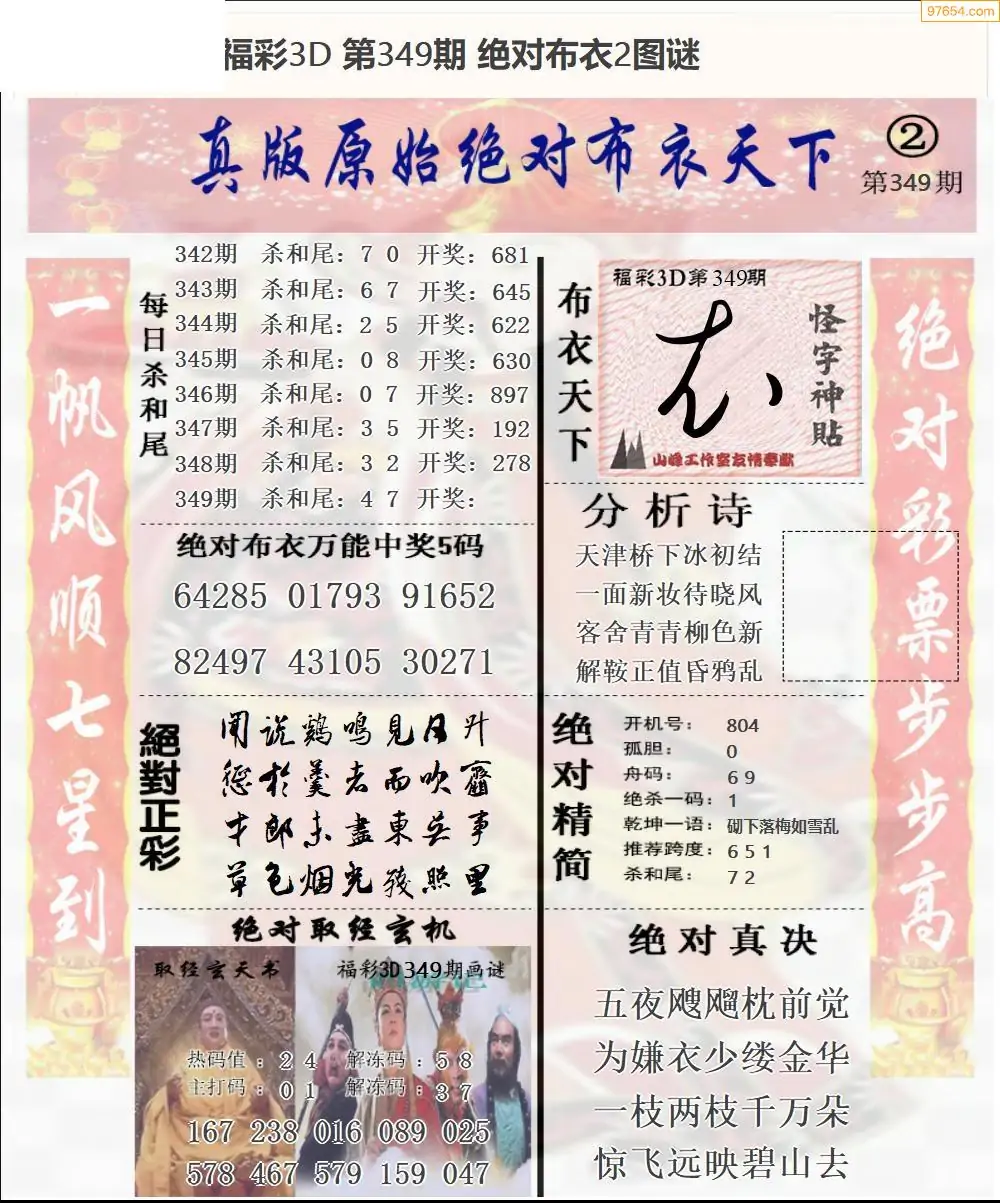 97654.com
福彩3D 第349期 绝对布衣2图谜
真版原始绝对布衣天下
②
第349期
一帆风顺七星到
每日杀和尾
342期 杀和尾：7 0 开奖：681
343期 杀和尾：6 7 开奖：645
344期 杀和尾：2 5 开奖：622
345期 杀和尾：0 8 开奖：630
346期 杀和尾：0 7 开奖：897
347期 杀和尾：3 5 开奖：192
348期 杀和尾：3 2 开奖：278
349期 杀和尾：4 7 开奖：
布衣天下
福彩3D第349期
怪字神貼
山峰工作室友情奉献
绝对彩票步步高
绝对布衣万能中奖5码
64285 01793 91652
82497 43105 30271
分析诗
天津桥下冰初结
一面新妆待晓风
客舍青青柳色新
解鞍正值昏鸦乱
絕對正彩
闻说鷄鳴見日升
懲於羹者而吹齏
才郎未盡東吴事
草色烟光残照里
绝对精简
开机号： 804
孤胆： 0
舟码： 6 9
绝杀一码：1
乾坤一语：砌下落梅如雪乱
推荐跨度：6 5 1
杀和尾： 7 2
绝对取经玄机
取经玄天书
福彩3D349期画谜
热码值：2 4 解冻码：5 8
主打码：0 1 解冻码：3 7
167 238 016 089 025
578 467 579 159 047
绝对真决
五夜飕飗枕前觉
为嫌衣少缕金华
一枝两枝千万朵
惊飞远映碧山去